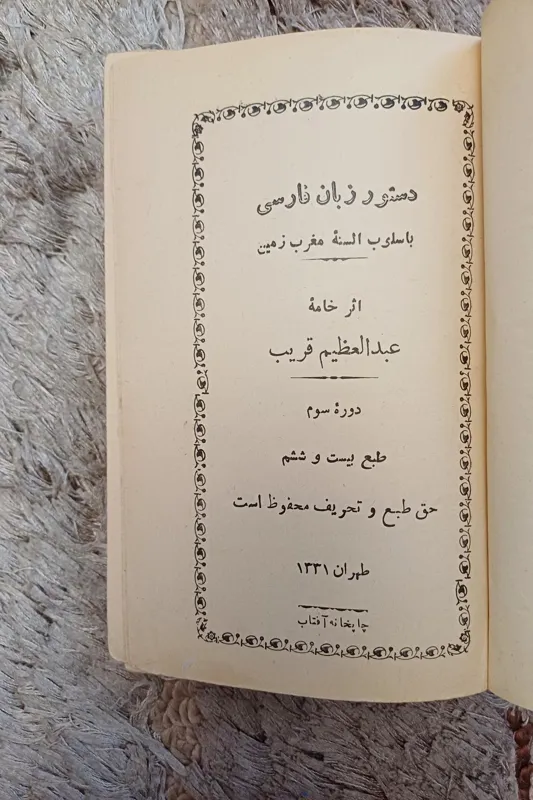 دستور زبان فارسی
باسلوب السنهٔ مغرب زمین
اثر خامهٔ
عبدالعظیم قریب
دورهٔ سوم
طبع بیست و ششم
حق طبع و تحریف محفوظ است
طهران ۱۳۳۱
چاپخانه آفتاب